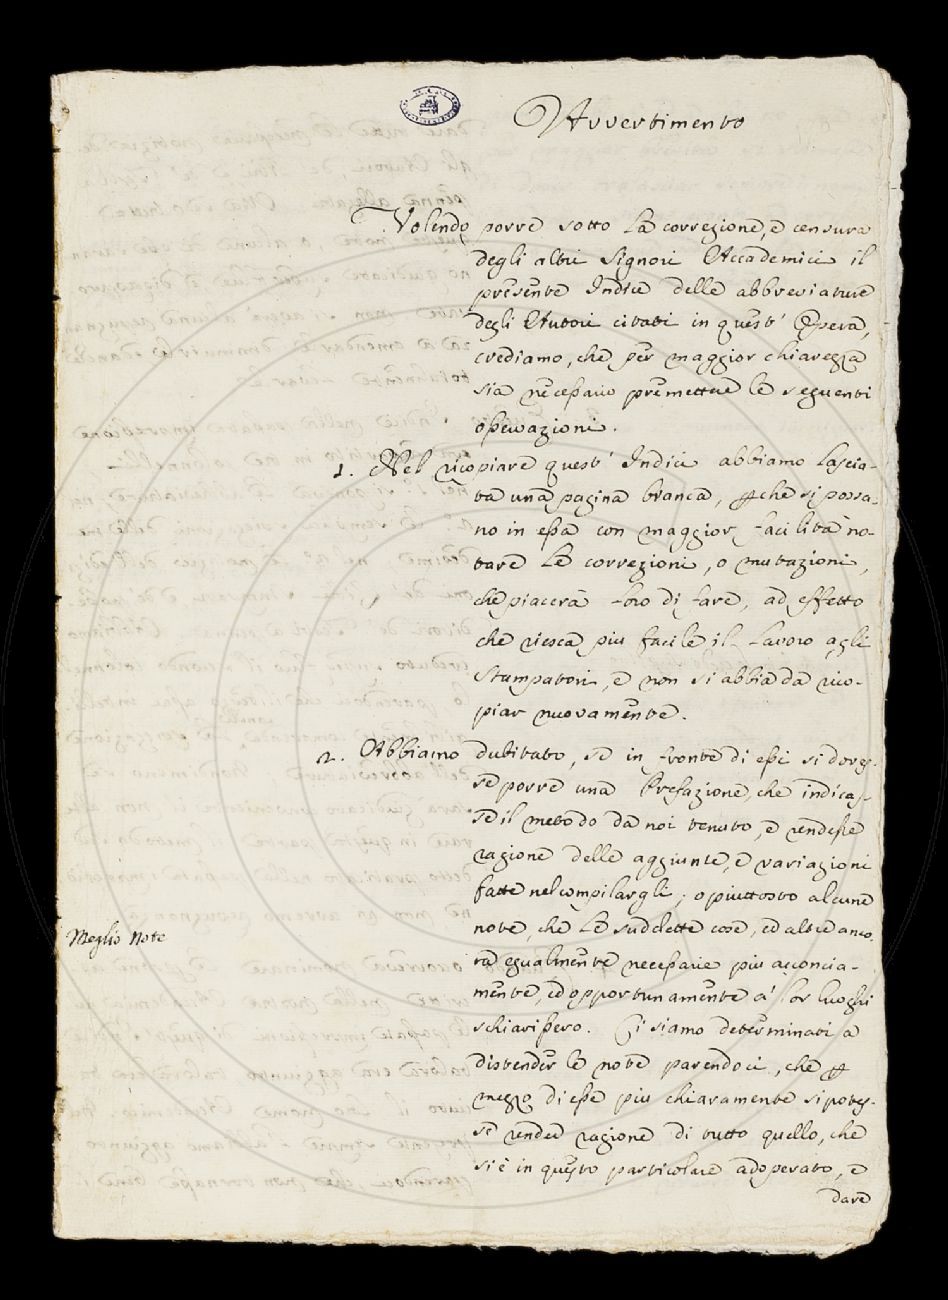 Avvertimento
Volendo porre sotto la correzione, e censura
degli altri Signori Accademici il
presente Indice delle abbreviature
degli Autori citati in quest' Opera,
crediamo, che per maggior chiarezza
sia necessario premettere le seguenti
osservazioni.
1. Nel ricopiare quest' Indici abbiamo lascia-
ta una pagina bianca, perche si possa-
no in essa con maggior facilità no-
tare le correzioni, o mutazioni,
che piacerà loro di fare, ad effetto
che riesca più facile il lavoro agli
Stampatori, e non si abbia da rico-
piar nuovamente.
2. Abbiamo dubitato, se in fronte di essi si doves-
se porre una Prefazione, che indicas-
se il metodo da noi tenuto, e rendesse
ragione delle aggiunte, e variazioni
fatte nel compilargli; o piuttosto alcune
note, che le suddette cose, ed altre anco-
ra egualmente necessarie più acconcia-
mente, ed opportunamente a' lor luoghi
schiarissero. Ci siamo determinati a
distender le note parendoci, che per
mezzo di esse più chiaramente si potes-
se render ragione di tutto quello, che
si è in questo particolare adoperato, e
dare
Meglio Note